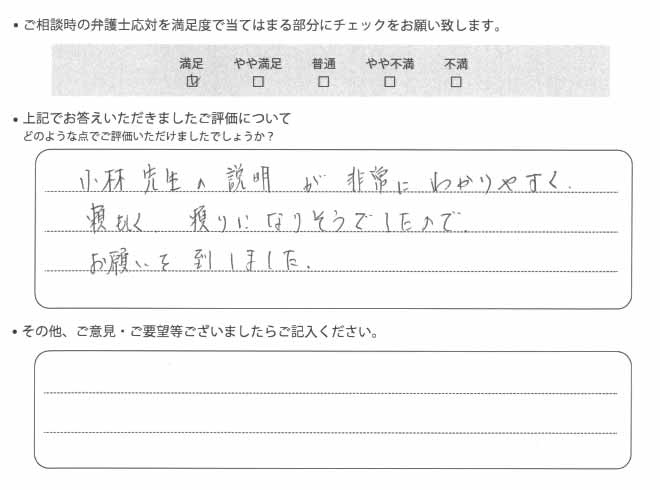 • ご相談時の弁護士応対を満足度で当てはまる部分にチェックをお願い致します。
満足 やや満足 普通 やや不満 不満
• 上記でお答えいただきましたご評価について
どのような点でご評価いただけましたでしょうか？
小林先生の説明が非常にわかりやすく、
頼もしく、頼りになりそうでしたので、
お願いを到しました。
• その他、ご意見・ご要望等ございましたらご記入ください。